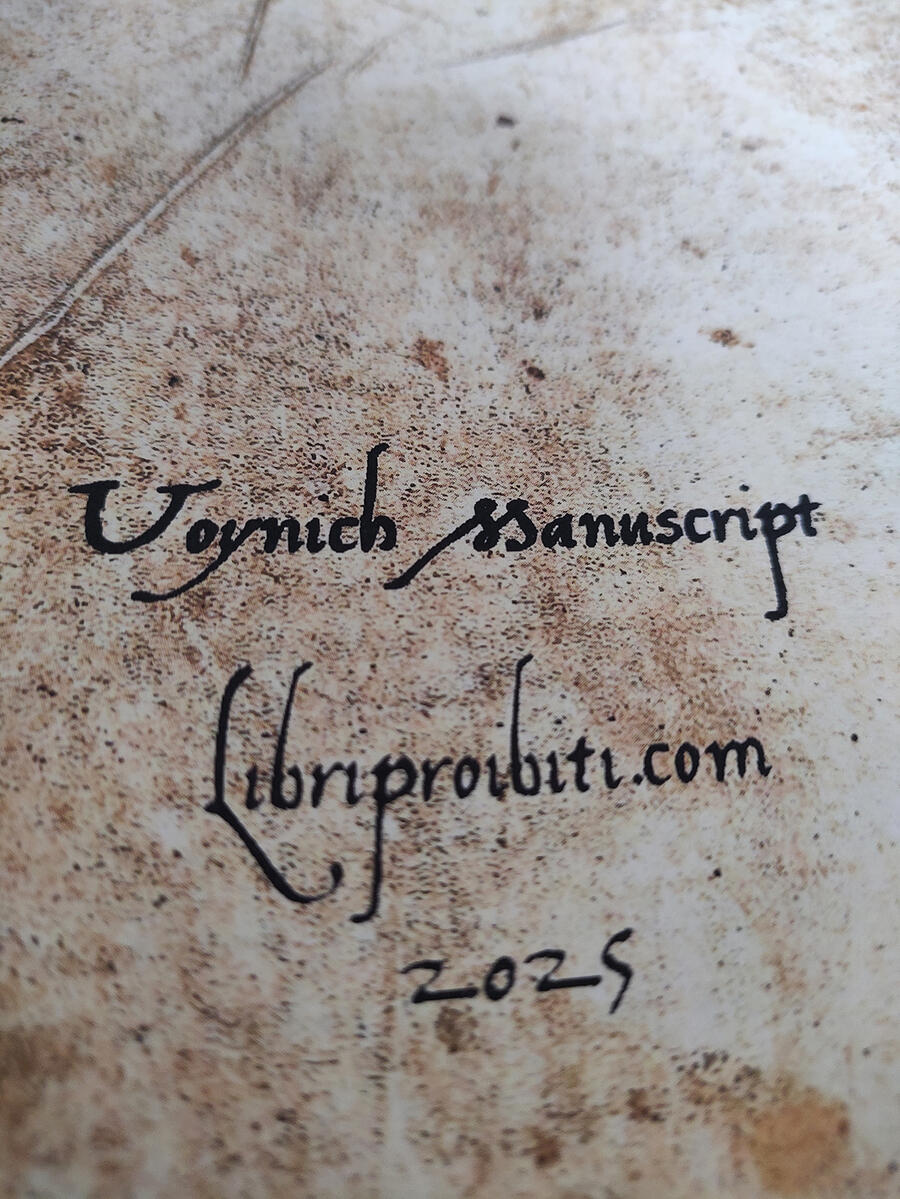 Voynich Manuscript
Libriproibiti.com
2025